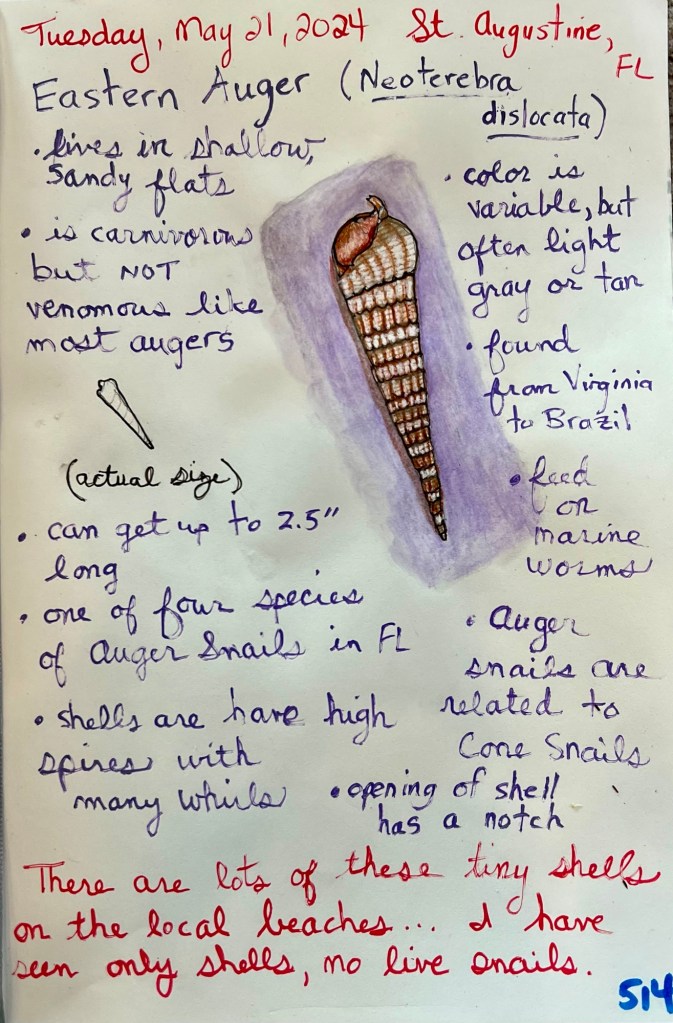 Tuesday, May 21, 2024 St. Augustine, FL
Eastern Auger (Neoterebra
dislocata)
• lives in shallow,
sandy flats
• is carnivorous
but NOT
venomous like
most augers
(actual size)
• can get up to 2.5"
long
• one of four species
of Auger Snails in FL
• shells are have high
spires with
many whirls
• color is
variable, but
often light
gray or tan
• found
from Virginia
to Brazil
• feed
on
marine
worms
• Auger
snails are
related to
Cone Snails
• opening of shell
has a notch
There are lots of these tiny shells
on the local beaches... I have
seen only shells, no live snails.
514